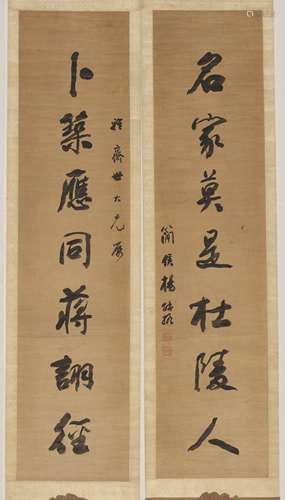 名家莫是杜陵人
卜築應同蔣詡徑
世大兄
侯楊